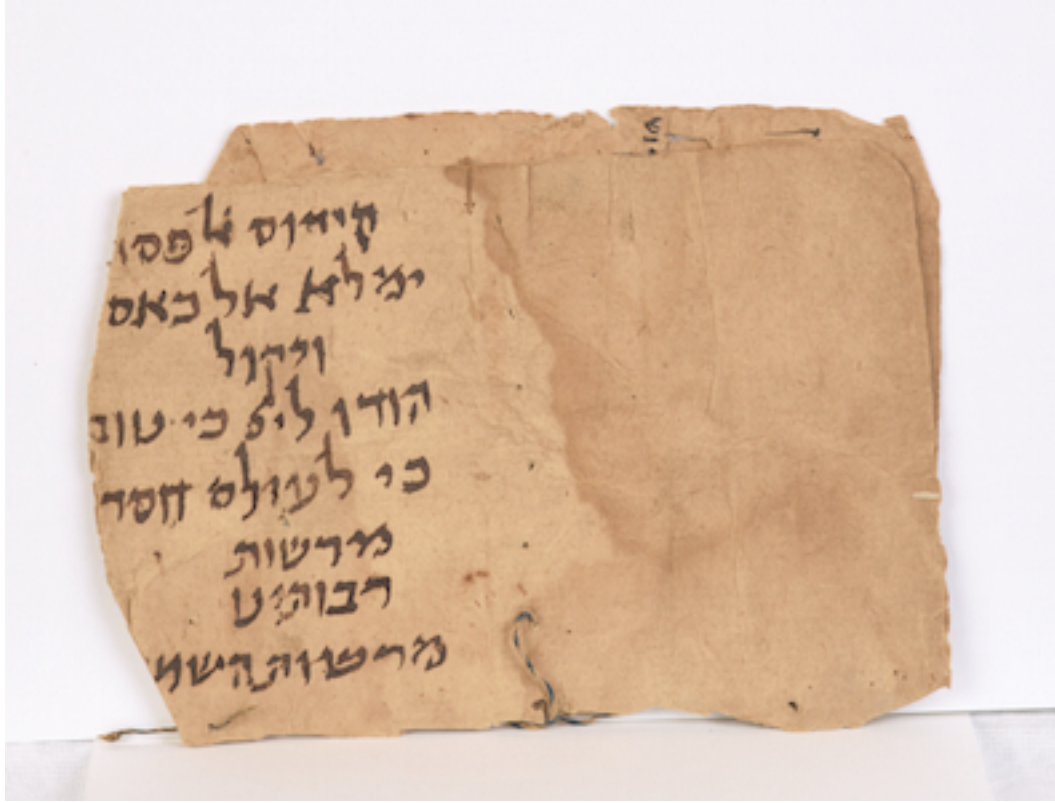 קידוס אלפסח
ימלא אל כאס
ויקול
הודו ליי כי טוב
כי לעולם חסד
מרשות
רבותינו
מרשות השמ